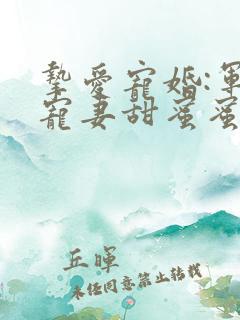 摯愛寵婚:軍
寵妻甜蜜蜜
丘暉
未經同意禁止轉載